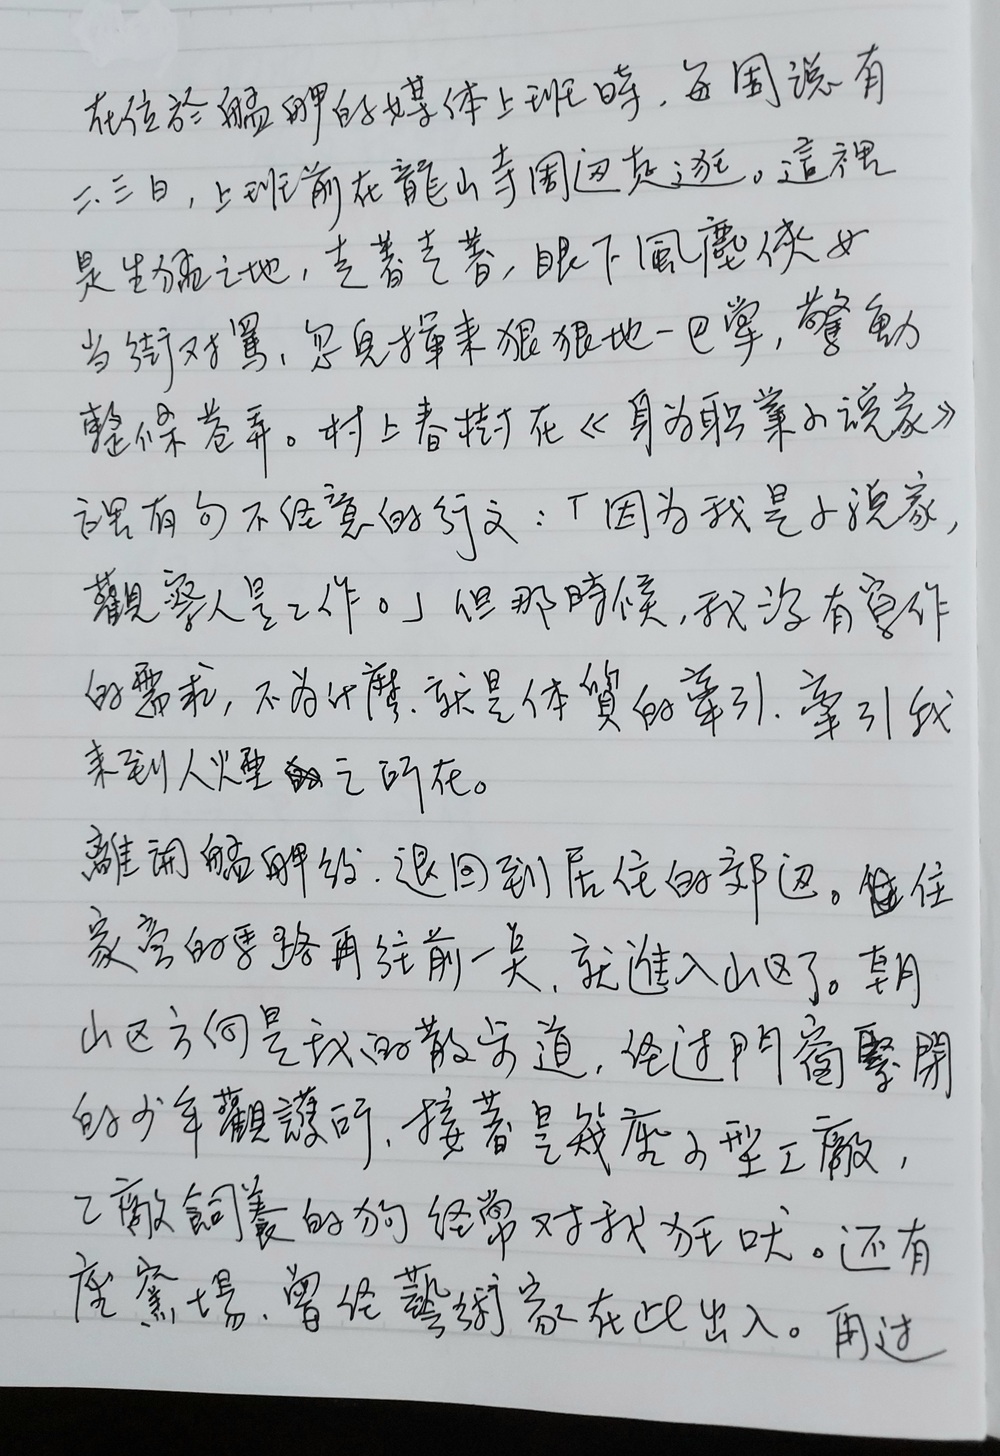 在位於艋舺的媒体上班時，每周總有
二、三日，上班前在龍山寺周边走逛。這裡
是生猛之地，走著走著，眼下風塵俠女
当街对罵，忽見揮来狠狠地一巴掌，驚動
整條巷弄。村上春樹在《身为职業小说家》
裡有句不经意的行文：「因为我是小说家，
觀察人是工作。」但那時候，我沒有寫作
的需求，不为什麼，就是体質的牽引，牽引我
来到人煙之所在。
離開艋舺後，退回到居住的郊边。住
家旁的馬路再往前一点，就進入山区了。朝
山区方向是我的散步道，经过門窗緊閉
的少年觀護所，接著是幾座小型工廠，
工廠飼養的狗经常对我狂吠。还有
座窯場，曾经藝術家在此出入。再过